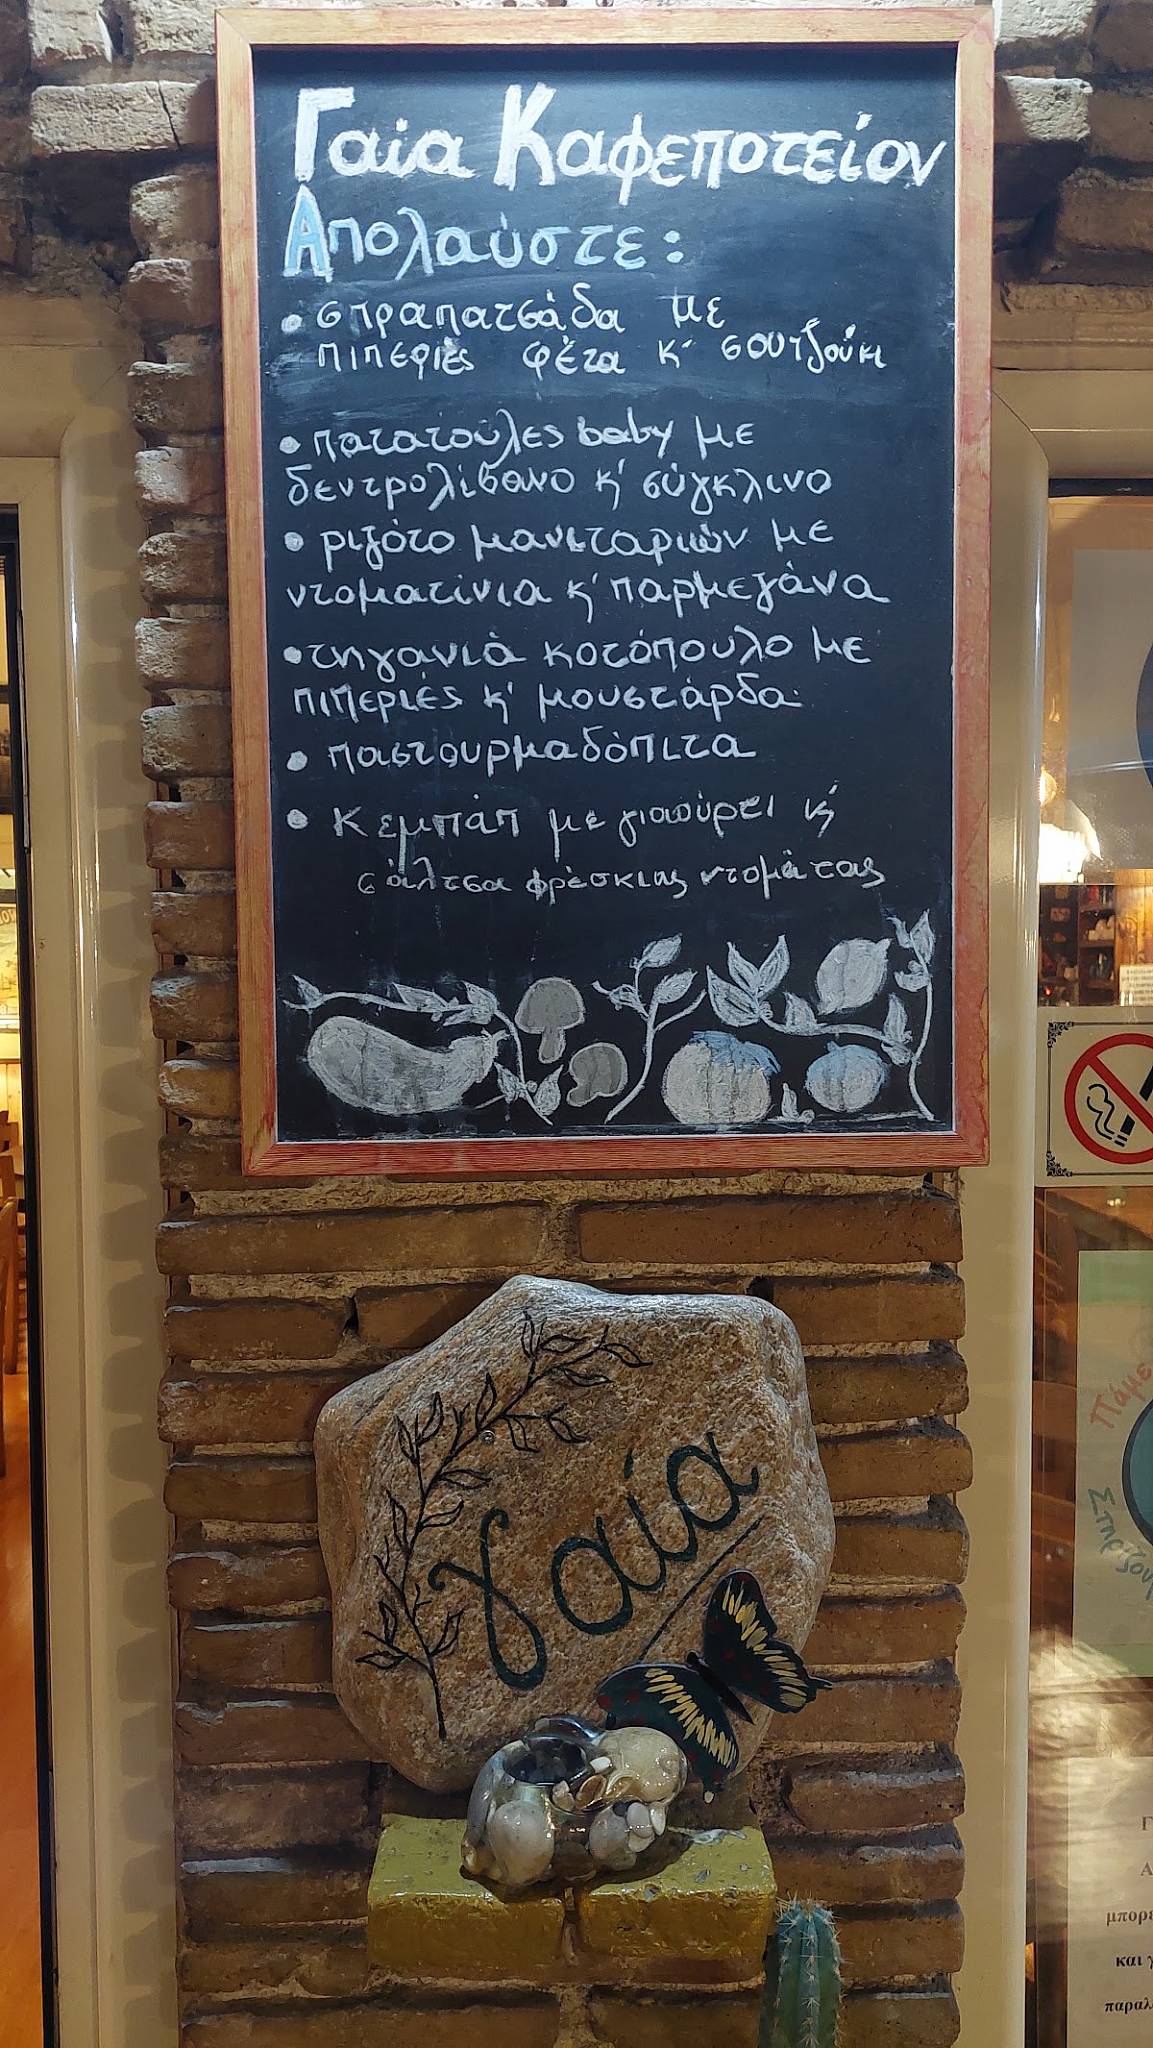 Γαία Καφεποτείον
Απολαύστε:
• στραπατσάδα με
πιπεριές φέτα κ' σουτζούκι
• πατατούλες baby με
δεντρολίβανο κ' σύγκλινο
• ριζότο μανιταριών με
ντοματίνια κ' παρμεζάνα
• τηγανιά κοτόπουλο με
πιπεριές κ' μουστάρδα
• παστουρμαδόπιτα
• Κεμπάπ με γιαούρτι κ'
σάλτσα φρέσκιας ντομάτας
γαία
Πάμε
μπορε
και γ
παραλ